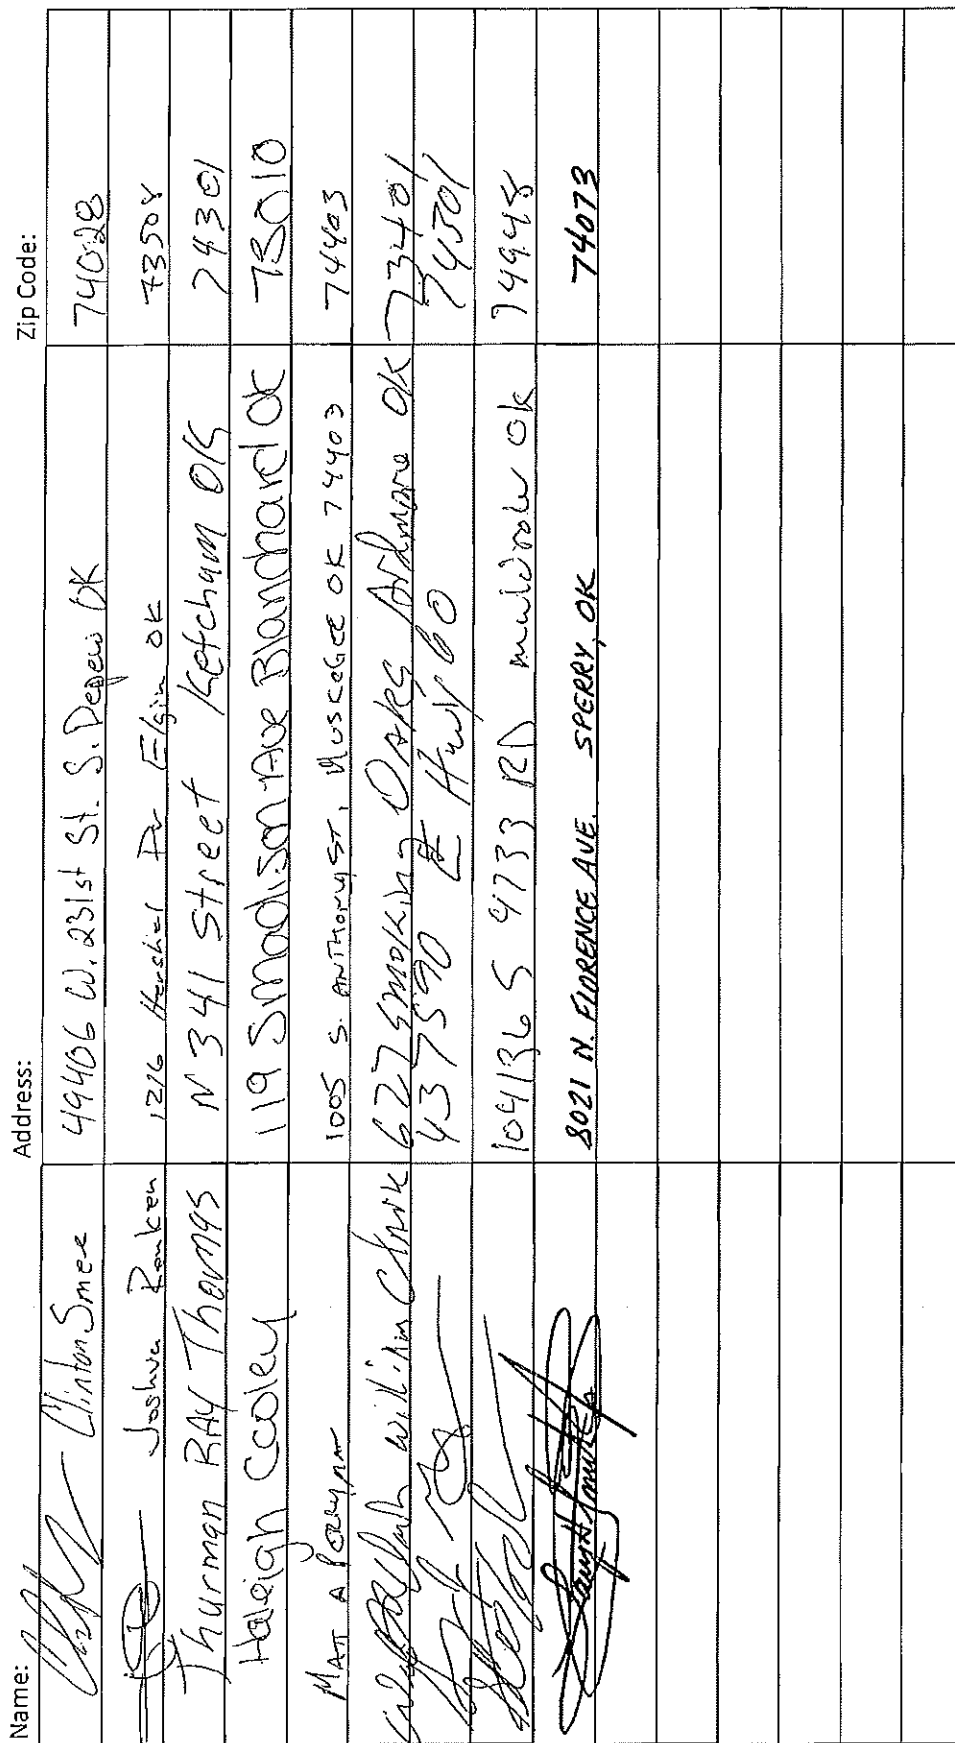 Name: Address: Zip Code:
Clinton Smee 49406 W. 231st St. S. Depew OK 74028
Joshua Ranken 1216 Hershial Dr Elgin OK 73508
Thurman RAY Thomas N 341 Street Ketchum OK 74301
Haleigh Cooley 119 S madison Ave Blanchard OK 73010
MATT A PERRYMAN 1005 S. ANTHONY ST, MUSKOGEE OK 74403 74403
William Clark 627 Smoking Oaks Ardmore OK 73401
437590 E Hwy 60 74301
104136 S 4733 RD muldrow ok 74948
8021 N. FLORENCE AVE. SPERRY, OK 74073